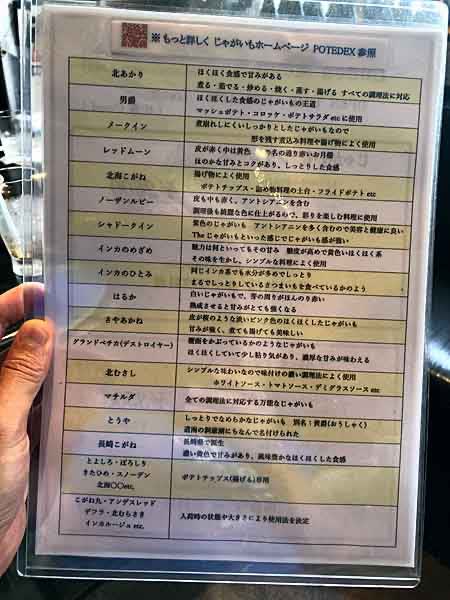 ※もっと詳しく じゃがいもホームページ POTEDEX 参照
北あかり
ほくほく食感で甘みがある
煮る・茹でる・炒める・焼く・蒸す・揚げる すべての調理法に対応
男爵
ほくほくした食感のじゃがいもの王道
マッシュポテト・コロッケ・ポテトサラダ etc に使用
メークイン
煮崩れしにくいしっかりとしたじゃがいもなので
形を残す煮込み料理や揚げ物によく使用
レッドムーン
皮が赤く中は黄色 名の通り赤いお月様
ほのかな甘みとコクがあり、しっとりした食感
北海こがね
揚げ物によく使用
ポテトチップス・詰め物料理の土台・フライドポテト etc
ノーザンルビー
皮も中も赤く、アントシアニンを含む
調理後も綺麗な色に仕上がるので、彩りを楽しむ料理に使用
シャドークイン
紫色のじゃがいも アントシアニンを多く含むので美容と健康に良い
The じゃがいもといった感じでじゃがいも感が強い
インカのめざめ
魅力は何といってもその甘み 糖度が高めで黄色いほくほく系
その味を生かし、シンプルな料理によく使用
インカのひとみ
同じインカ系でも水分が多めでしっとり
まるでしっとりしているさつまいもを食べているかのよう
はるか
白いじゃがいもで、芽の周りがほんのり赤い
熟成させると甘みがとても強くなる
さやあかね
皮が桜のような淡いピンク色のほくほくしたじゃがいも
甘みが強く、煮ても揚げても美味しい
グランドペチカ(デストロイヤー)
覆面をかぶっているかのようなじゃがいも
ほくほくしていて少し粘り気があり、濃厚な甘みが味わえる
北むさし
シンプルな味わいなので味付けの濃い調理法によく使用
ホワイトソース・トマトソース・デミグラスソース etc
マチルダ
全ての調理法に対応する万能なじゃがいも
とうや
しっとりでなめらかなじゃがいも 別名:黄爵(おうしゃく)
道南の洞爺湖にちなんで名付けられた
長崎こがね
長崎県で誕生
濃い黄色で甘みがあり、風味豊かなほくほくした食感
とよしろ・ぽろしり
きたひめ・スノーデン
北海〇〇etc.
ポテトチップス(揚げる)専用
こがね丸・アンデスレッド
デフラ・北むらさき
インカルージュ etc.
入荷時の状態や大きさにより使用法を決定